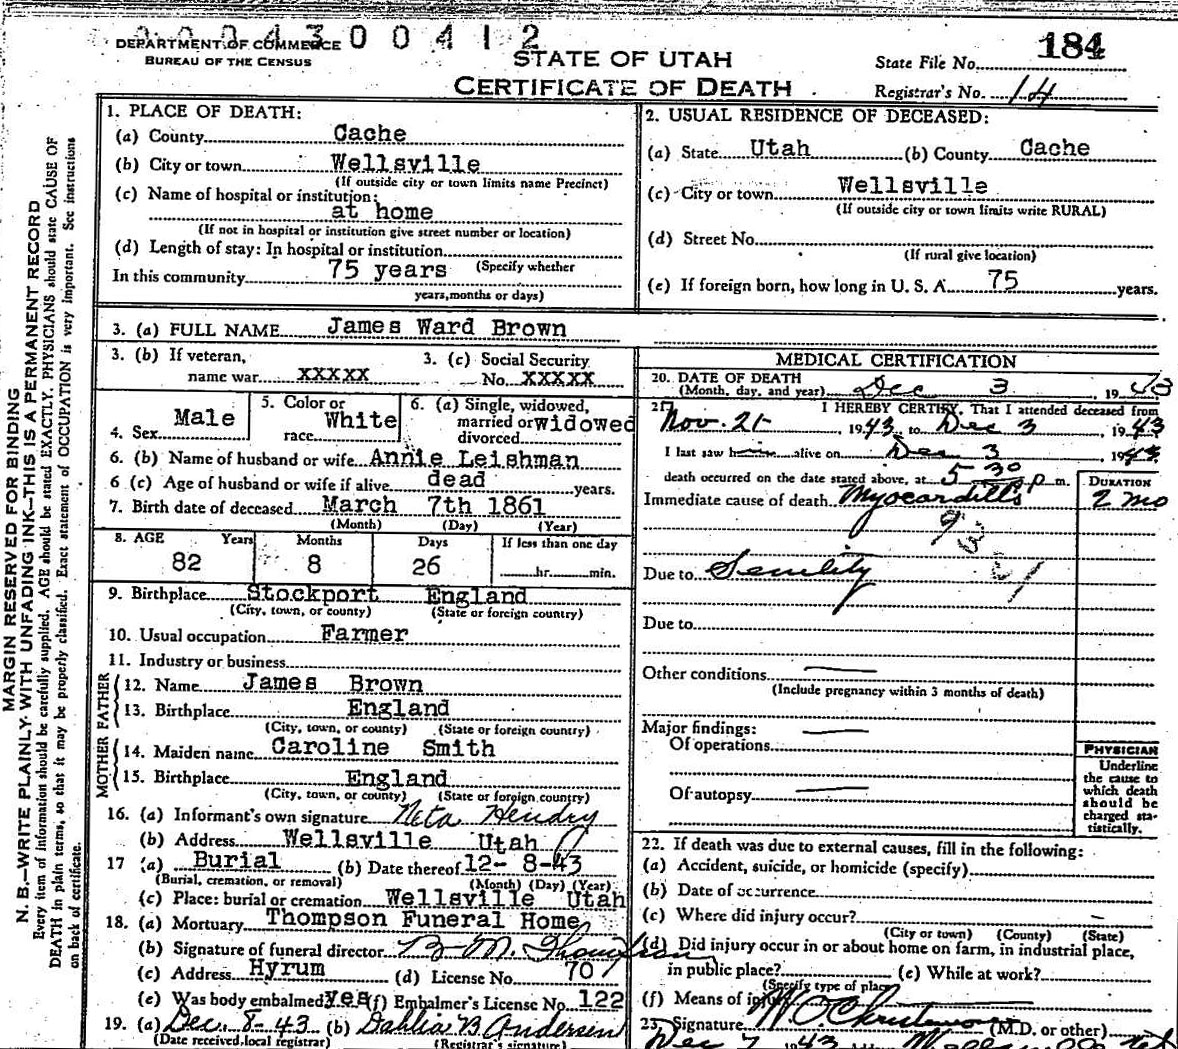 00430 0 4 1 2
DEPARTMENT OF COMMERCE
BUREAU OF THE CENSUS
STATE OF UTAH
CERTIFICATE OF DEATH
State File No. 184
Registrar's No. 14
MARGIN RESERVED FOR BINDING
N. B.—WRITE PLAINLY WITH UNFADING INK—THIS IS A PERMANENT RECORD
Every item of information should be carefully supplied. AGE should be stated EXACTLY. PHYSICIANS should state CAUSE OF
DEATH in plain terms, so that it may be properly classified. Exact statement of OCCUPATION is very important. See instructions
on back of certificate.
1. PLACE OF DEATH:
(a) County Cache
(b) City or town Wellsville
(If outside city or town limits name Precinct)
(c) Name of hospital or institution:
at home
(If not in hospital or institution give street number or location)
(d) Length of stay: In hospital or institution
In this community 75 years (Specify whether
years, months or days)
2. USUAL RESIDENCE OF DECEASED:
(a) State Utah (b) County Cache
(c) City or town Wellsville
(If outside city or town limits write RURAL)
(d) Street No.
(If rural give location)
(e) If foreign born, how long in U. S. A. 75 years.
3. (a) FULL NAME James Ward Brown
3. (b) If veteran,
name war XXXXX
3. (c) Social Security
No. XXXXX
4. Sex Male
5. Color or
race White
6. (a) Single, widowed,
married or widowed
divorced
6. (b) Name of husband or wife Annie Leishman
6 (c) Age of husband or wife if alive dead years.
7. Birth date of deceased March 7th 1861
(Month) (Day) (Year)
8. AGE Years Months Days If less than one day
82 8 26 hr. min.
9. Birthplace Stockport England
(City, town, or county) (State or foreign country)
10. Usual occupation Farmer
11. Industry or business
FATHER
12. Name James Brown
13. Birthplace England
(City, town, or county) (State or foreign country)
MOTHER
14. Maiden name Caroline Smith
15. Birthplace England
(City, town, or county) (State or foreign country)
16. (a) Informant's own signature Neta Hendry
(b) Address Wellsville Utah
17 (a) Burial (b) Date thereof 12- 8-43
(Burial, cremation, or removal) (Month) (Day) (Year)
(c) Place: burial or cremation Wellsville Utah
18. (a) Mortuary Thompson Funeral Home
(b) Signature of funeral director B. M. Thompson
(c) Address Hyrum (d) License No. 707
(e) Was body embalmed yes (f) Embalmer's License No. 122
19. (a) Dec. 8-43 (b) Dahlia B. Andersen
(Date received, local registrar) (Registrar's signature)
MEDICAL CERTIFICATION
20. DATE OF DEATH
(Month, day, and year) Dec 3, 1943
21. I HEREBY CERTIFY, That I attended deceased from
Nov. 21, 1943, to Dec 3, 1943
I last saw h alive on Dec 3 1943
death occurred on the date stated above, at 5 30 p m.
DURATION
Immediate cause of death Myocarditis 2 mo
93
Due to Senility
Due to
Other conditions
(Include pregnancy within 3 months of death)
Major findings:
Of operations
Of autopsy
PHYSICIAN
Underline
the cause to
which death
should be
charged sta-
tistically.
22. If death was due to external causes, fill in the following:
(a) Accident, suicide, or homicide (specify)
(b) Date of occurrence
(c) Where did injury occur?
(City or town) (County) (State)
(d) Did injury occur in or about home on farm, in industrial place,
in public place? (e) While at work?
(Specify type of place)
(f) Means of injury
23. Signature W. O. Christensen (M.D. or other)
Dec 7 1943